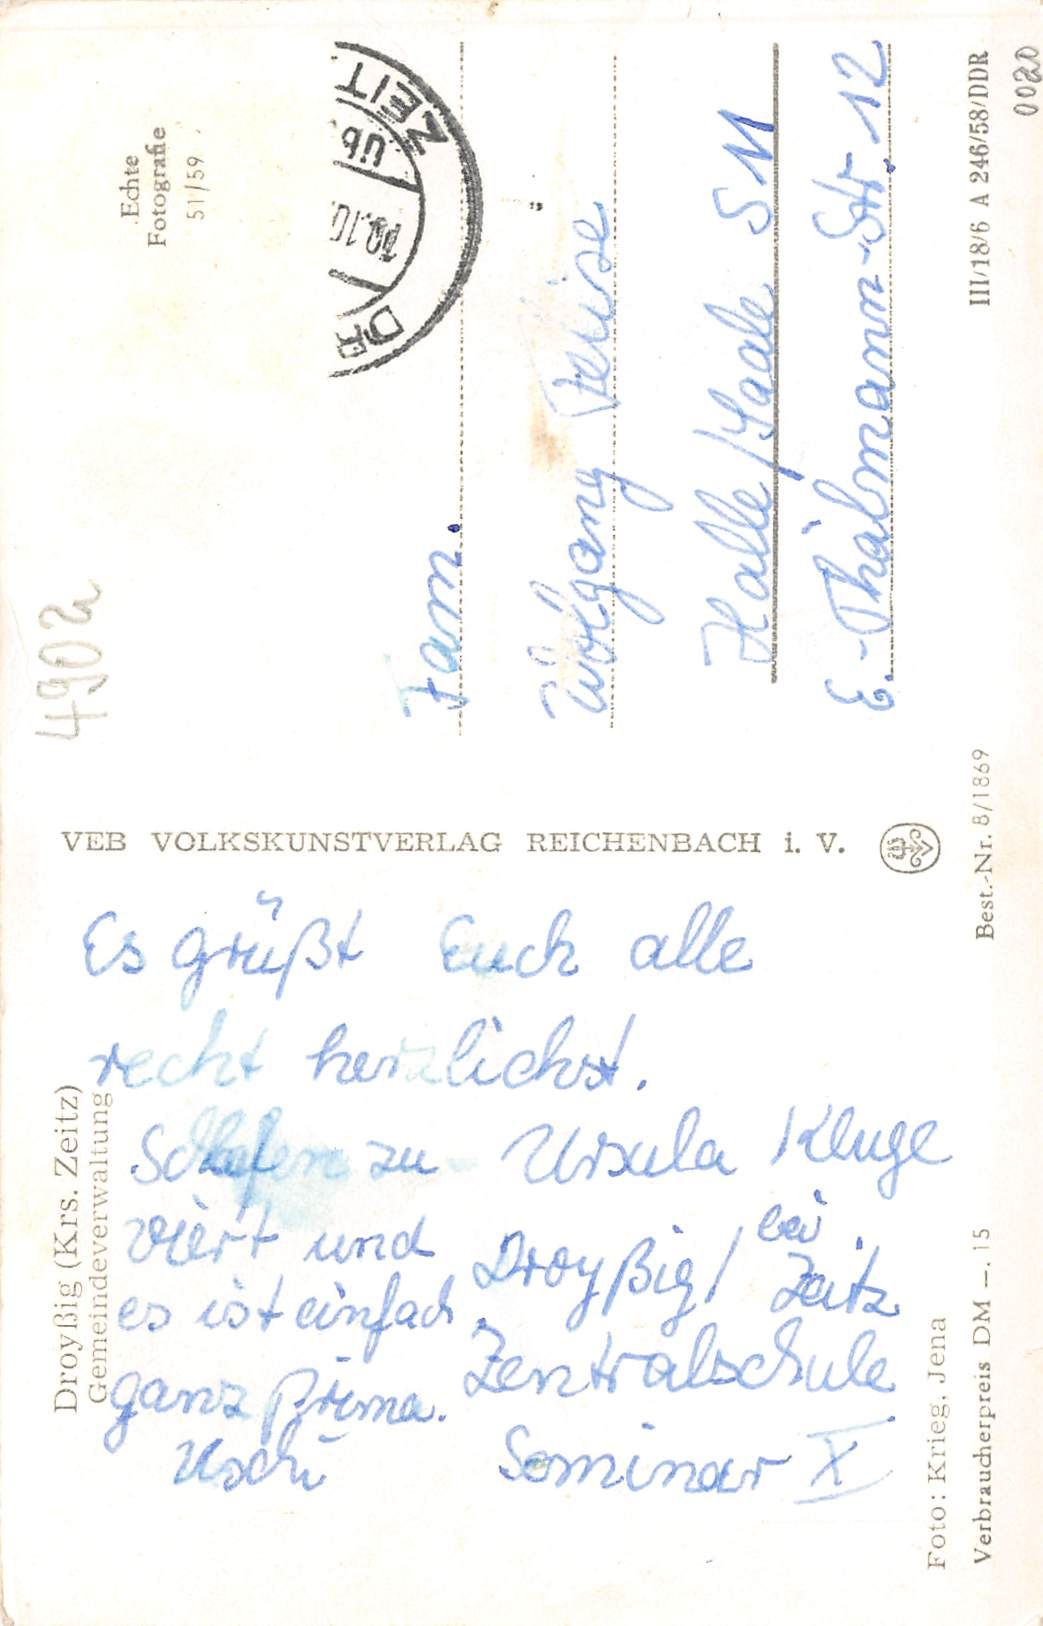 Droyßig (Krs. Zeitz)
Gemeindeverwaltung
Es grüßt Euch alle
recht herzlichst.
Schlafen zu
viert und
es ist einfach
ganz prima.
Uschi
Ursula Kluge
Droyßig / bei
Zeitz
Zentralschule
Seminar X
Foto: Krieg, Jena
Verbraucherpreis DM —.15
VEB VOLKSKUNSTVERLAG REICHENBACH i. V.
Best.-Nr. 8/1869
Echte
Fotografie
51/59
ZEIT
10.10.
Fam.
Wolfgang
Halle/Saale S 11
E.-Thälmann-Str. 12
III/18/6 A 246/58/DDR
0020